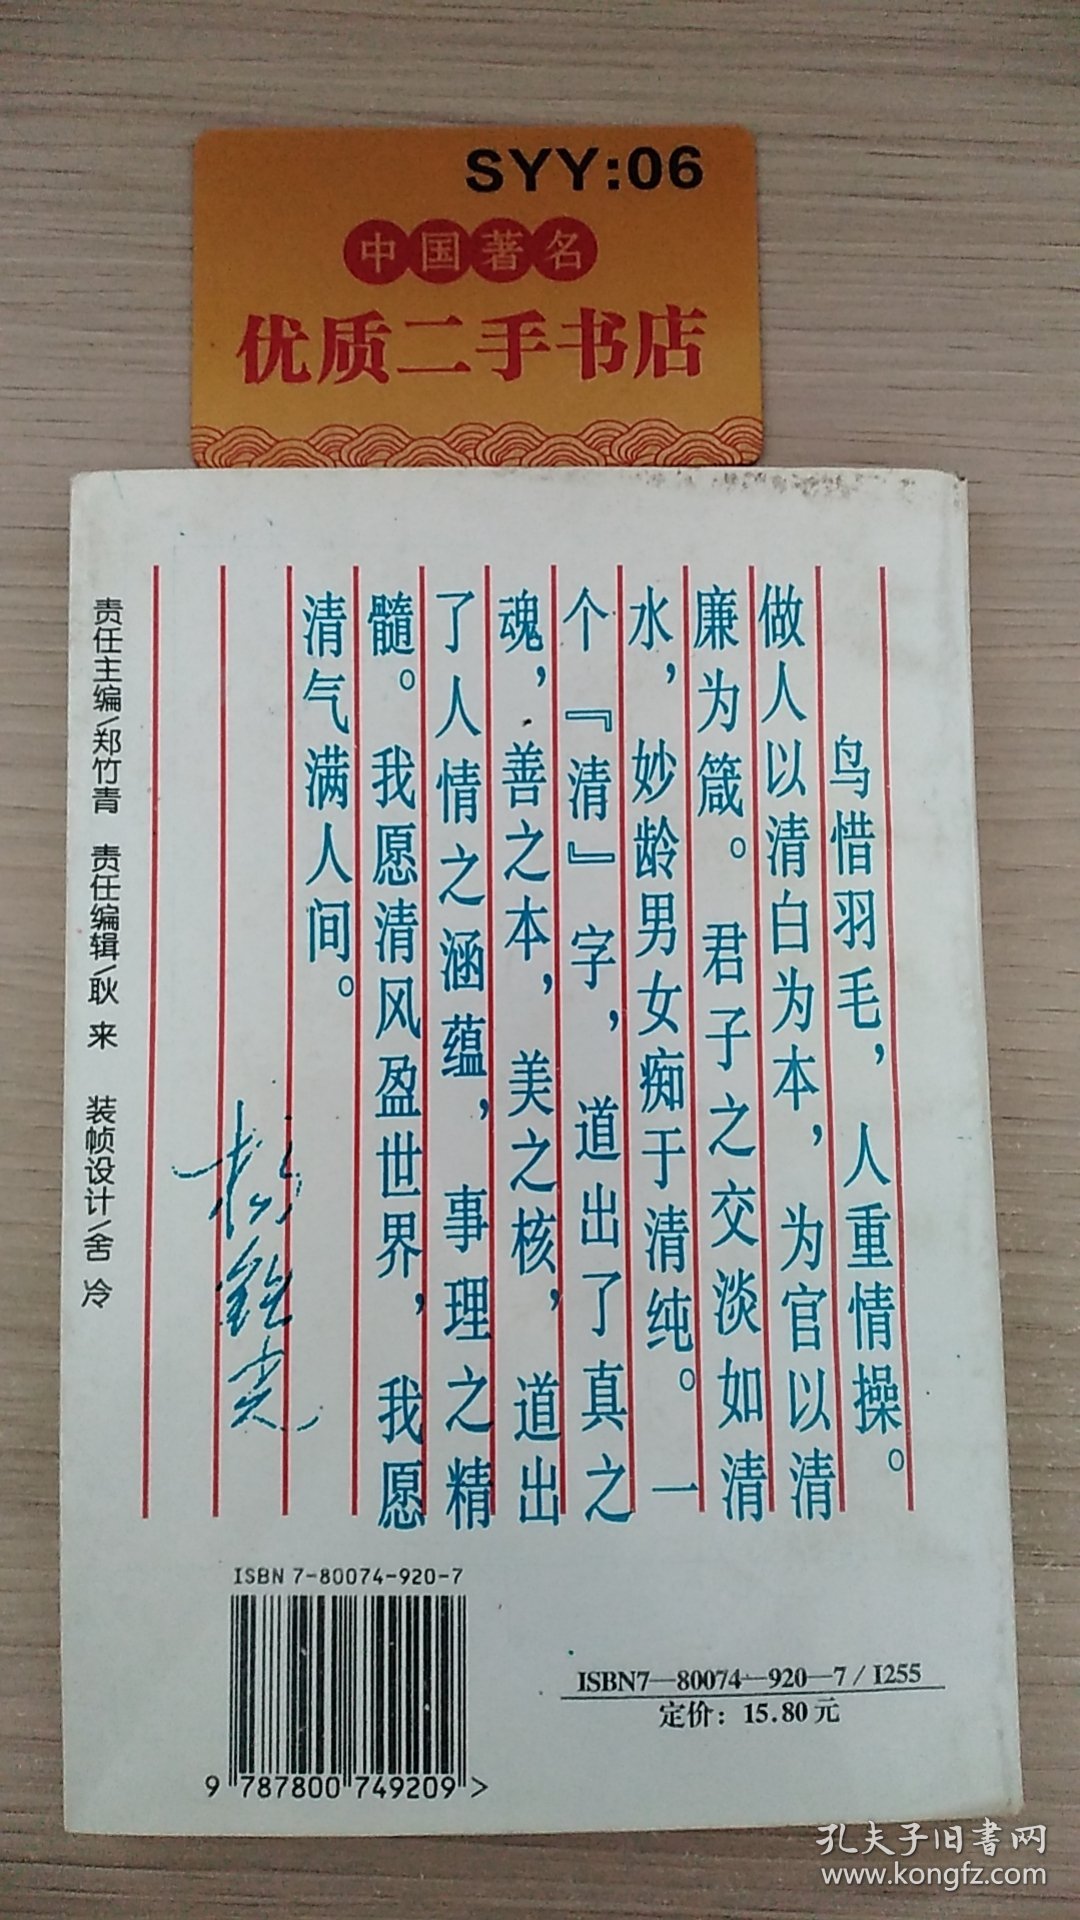 SYY:06
中国著名
优质二手书店
鸟惜羽毛，人重情操。
做人以清白为本，为官以清
廉为箴。君子之交淡如清
水，妙龄男女痴于清纯。一
个『清』字，道出了真之
魂，善之本，美之核，道出
了人情之涵蕴，事理之精
髓。我愿清风盈世界，我愿
清气满人间。
责任主编/郑竹青 责任编辑/耿 来 装帧设计/舍 冷
ISBN 7-80074-920-7
9 787800 749209 >
ISBN7—80074—920—7/I255
定价：15.80元
孔夫子旧書网
www.kongfz.com